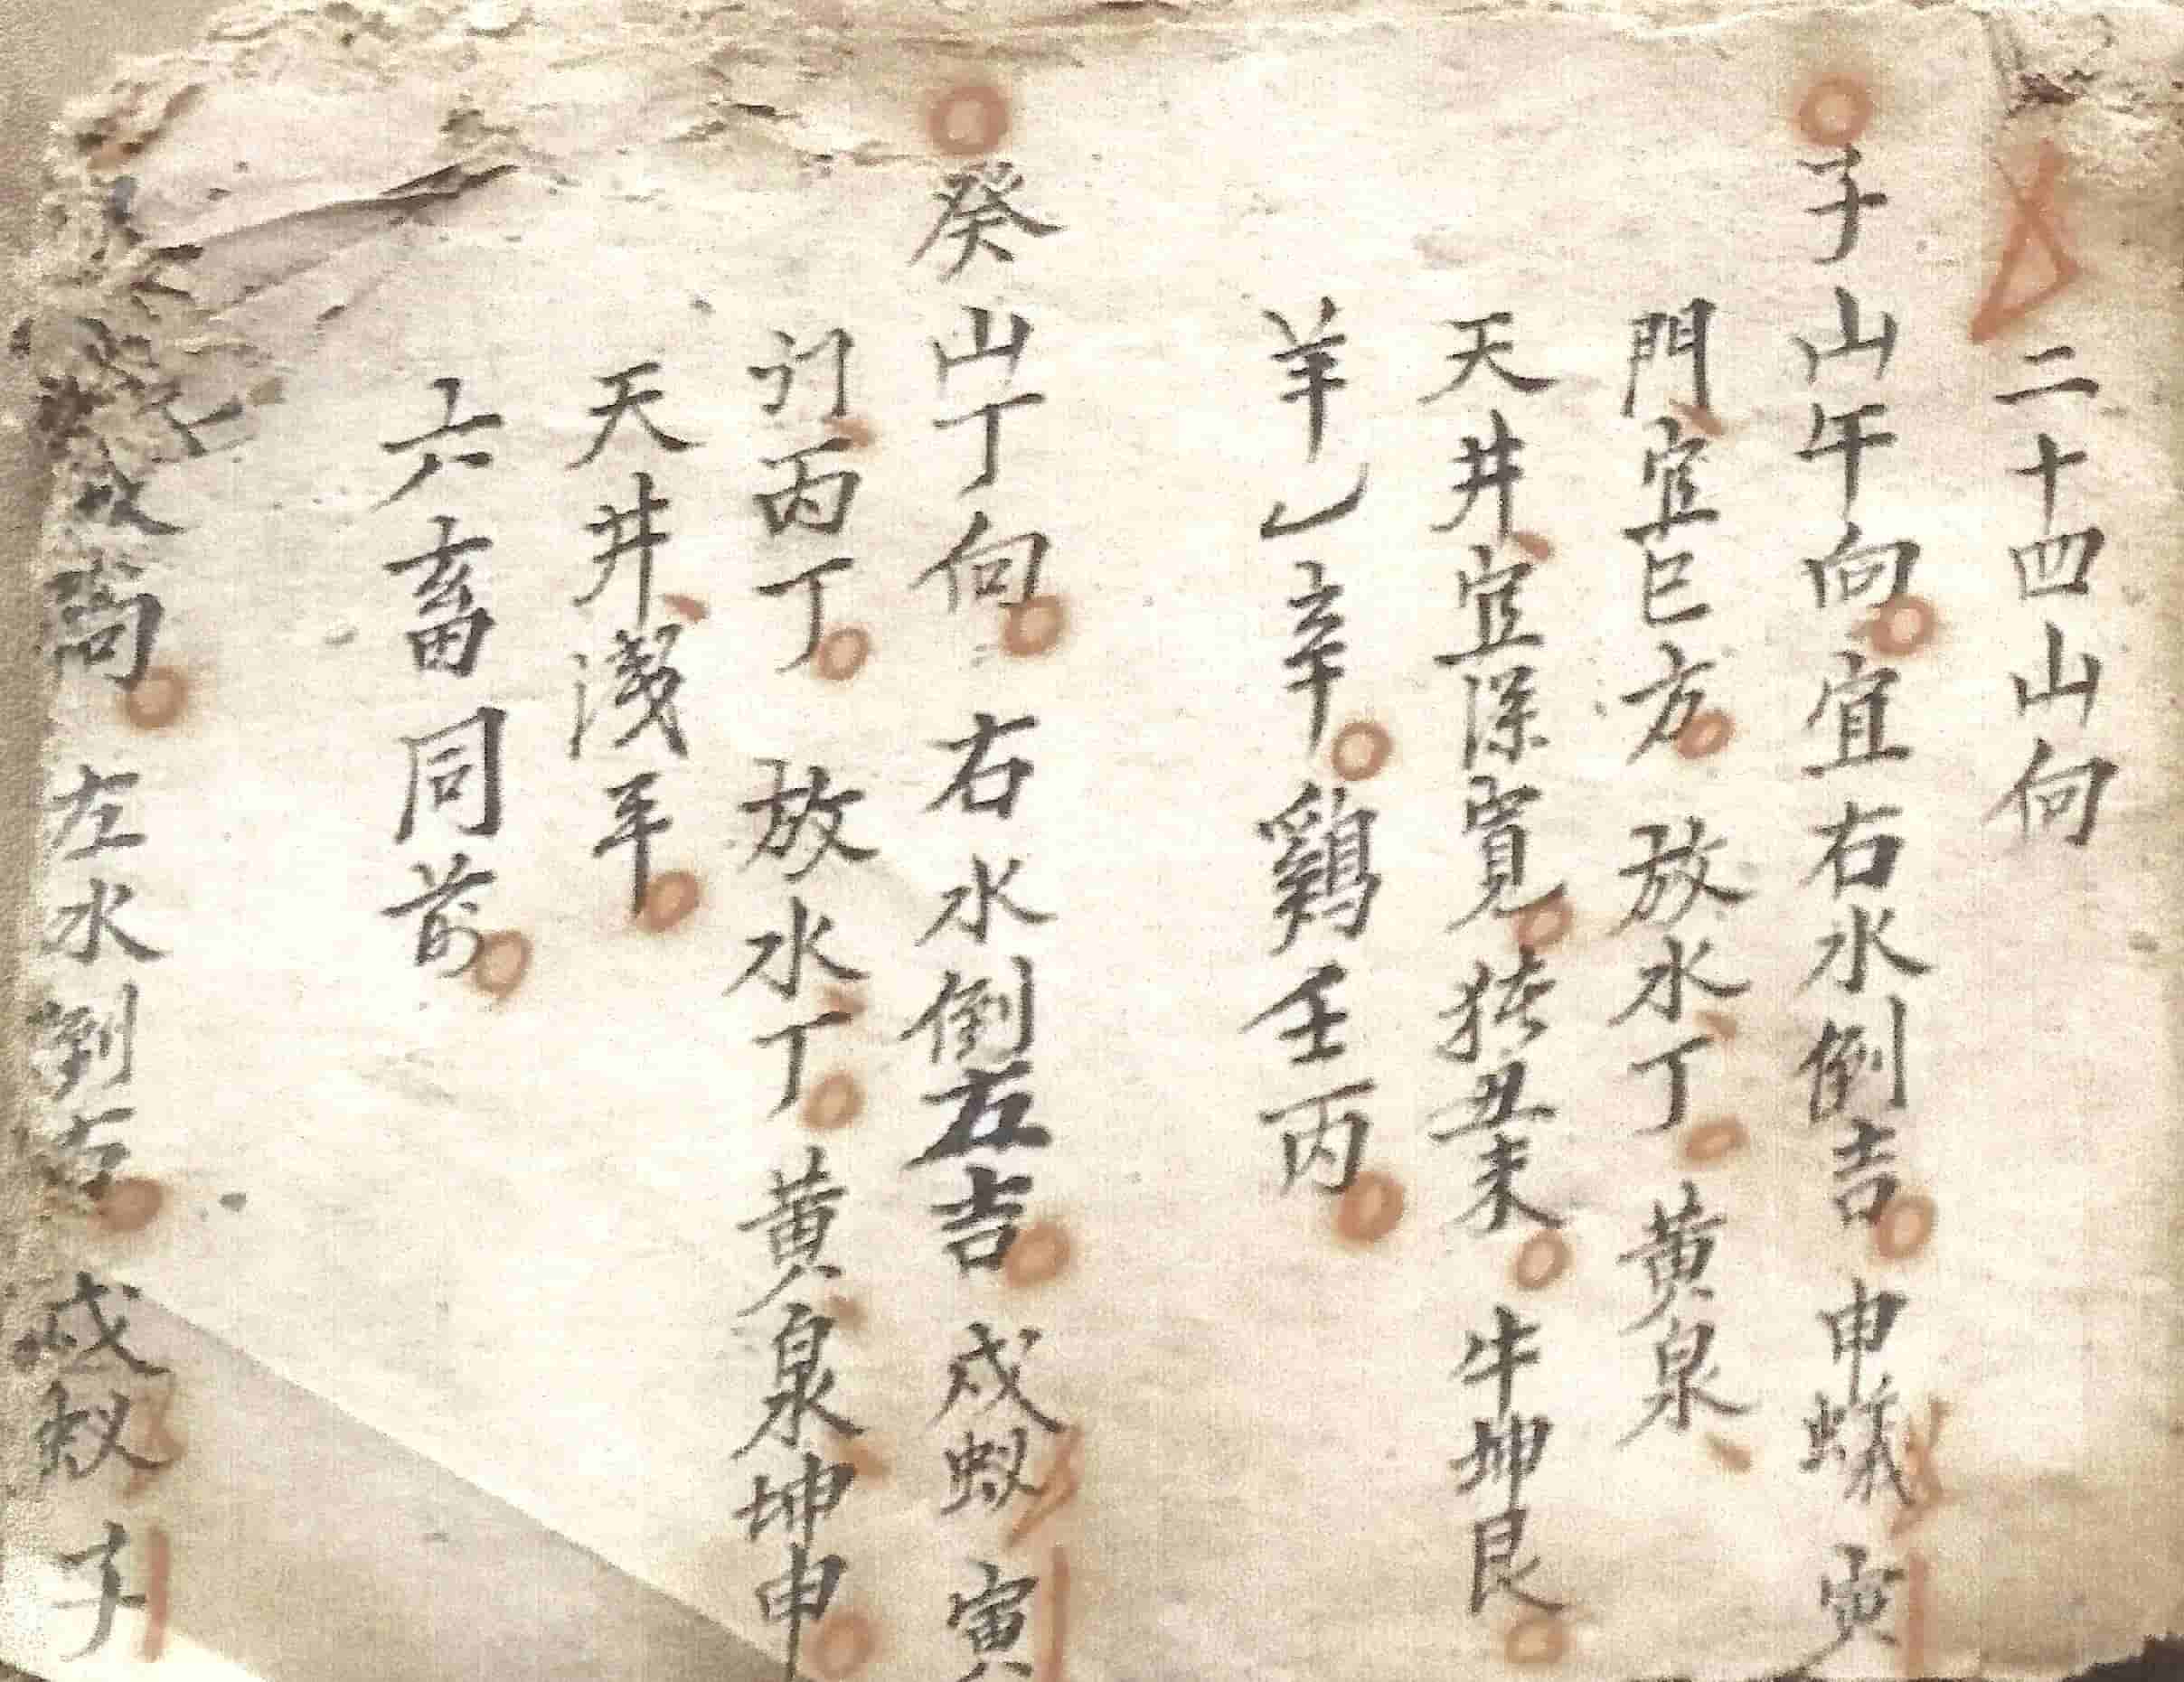 二十四山向
子山午向宜右水倒吉申蟻寅
門宜巳方放水丁黄泉
天井宜深寬猪丑未牛坤艮
羊乙辛鷄壬丙
癸山丁向右水倒左吉戌蚁寅
门丙丁放水丁黄泉坤申
天井淺平
六畜同前
向左水倒右戌蚁子